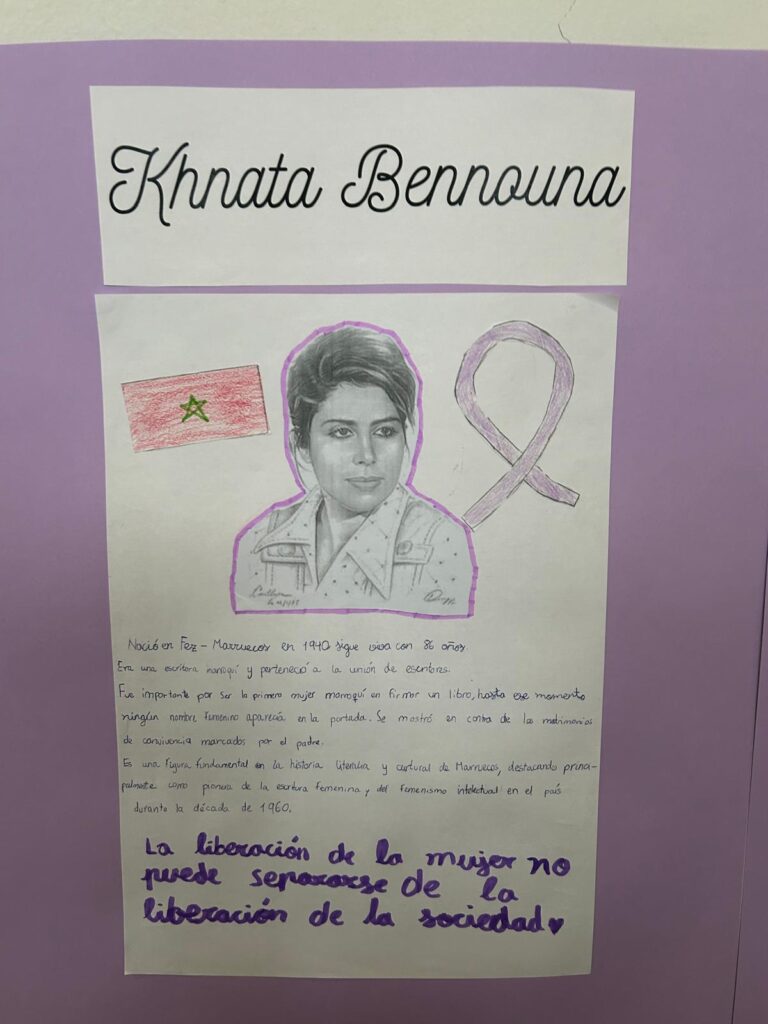 Khnata Bennouna
Nació en Fez - Marruecos en 1940 sigue viva con 86 años.
Era una escritora marroquí y perteneció a la unión de escritores.
Fue importante por ser la primera mujer marroquí en firmar un libro, hasta ese momento
ningún nombre femenino aparecía en la portada. Se mostró en contra de los matrimonios
de convivencia marcados por el padre.
Es una figura fundamental en la historia literaria y cultural de Marruecos, destacando princi-
palmente como pionera de la escritura femenina y del feminismo intelectual en el país
durante la década de 1960.
La liberación de la mujer no
puede separarse de la
liberación de la sociedad